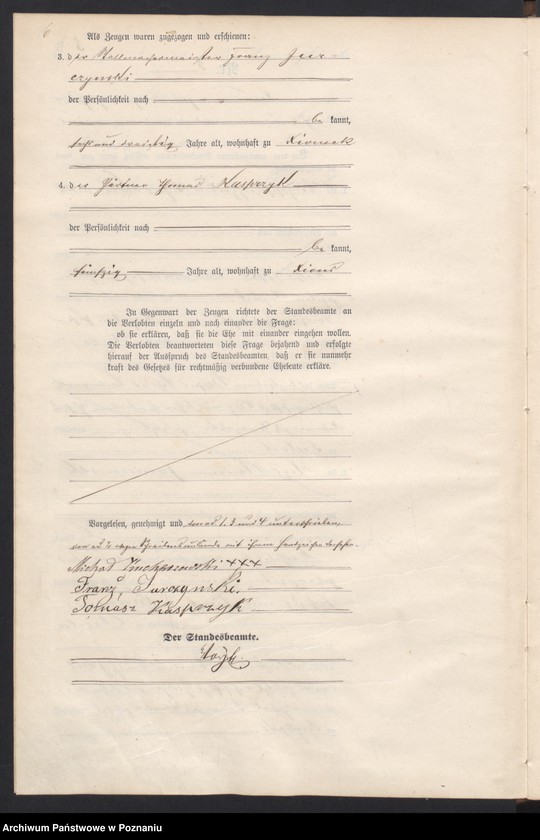 6
Als Zeugen waren zugezogen und erschienen:
3. der Stellmachermeister Franz Jur-
czynski
der Persönlichkeit nach
be kannt,
sechs und dreißig Jahre alt, wohnhaft zu Xionsek
4. der Gärtner Thomas Kasprzyk
der Persönlichkeit nach
be kannt,
fünfzig Jahre alt, wohnhaft zu Xions
In Gegenwart der Zeugen richtete der Standesbeamte an
die Verlobten einzeln und nach einander die Frage:
ob sie erklären, daß sie die Ehe mit einander eingehen wollen.
Die Verlobten beantworteten diese Frage bejahend und erfolgte
hierauf der Ausspruch des Standesbeamten, daß er sie nunmehr
kraft des Gesetzes für rechtmäßig verbundene Eheleute erkläre.
Vorgelesen, genehmigt und von ad 1. 3 und 4 unterschrieben,
von ad 2 wegen Schreibensunkunde mit ihrem Handzeichen versehen.
Michał +++
Franz Jurczynski.
Tomasz Kasprzyk
Der Standesbeamte.
Archiwum Państwowe w Poznaniu